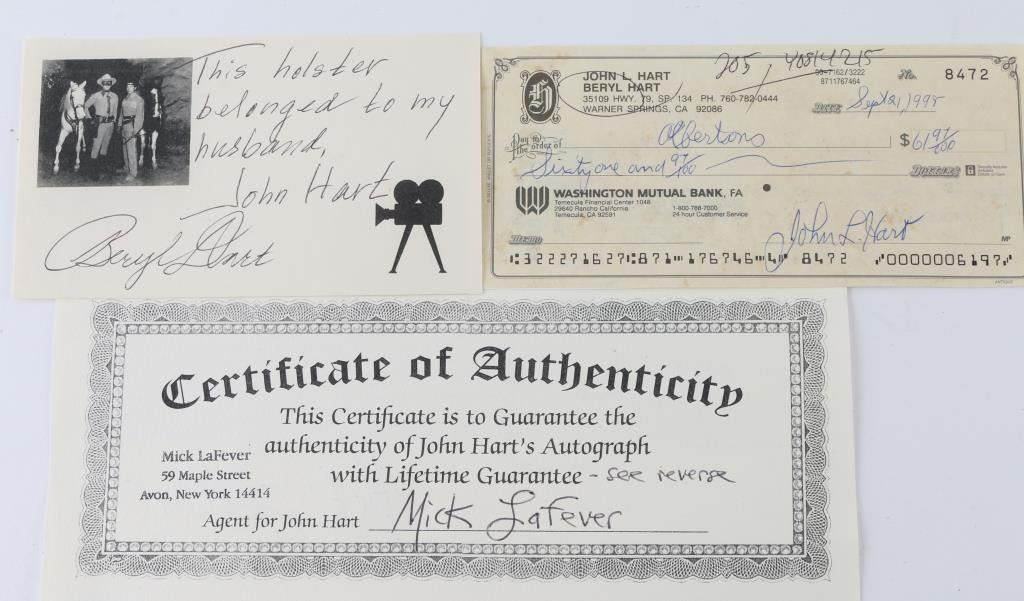 This holster
belonged to my
husband,
John Hart
Beryl Hart
JOHN L. HART
BERYL HART
35109 HWY. 79, SP. 134 PH. 760-782-0444
WARNER SPRINGS, CA 92086
205
40814215
90-7162/3222
8711767464
No. 8472
DATE Sept 21, 1998
Pay to the order of Albertons $ 61 97/100
Sixty one and 97/100 DOLLARS
WASHINGTON MUTUAL BANK, FA
Temecula Financial Center 1048
29640 Rancho California
Temecula, CA 92591
1-800-788-7000
24 hour Customer Service
MEMO
John L. Hart
MP
⑆322271627⑆871⑈176746⑈4⑈ 8472 ⑈0000006197⑈
ANTIQUE
Certificate of Authenticity
This Certificate is to Guarantee the
authenticity of John Hart's Autograph
with Lifetime Guarantee - see reverse
Mick LaFever
59 Maple Street
Avon, New York 14414
Agent for John Hart Mick LaFever